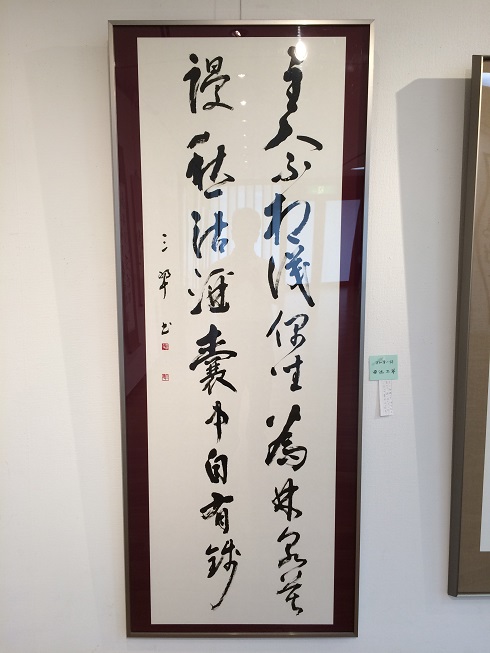 主人不相識偶坐為林泉莫
謾愁沽酒囊中自有錢
三翠書